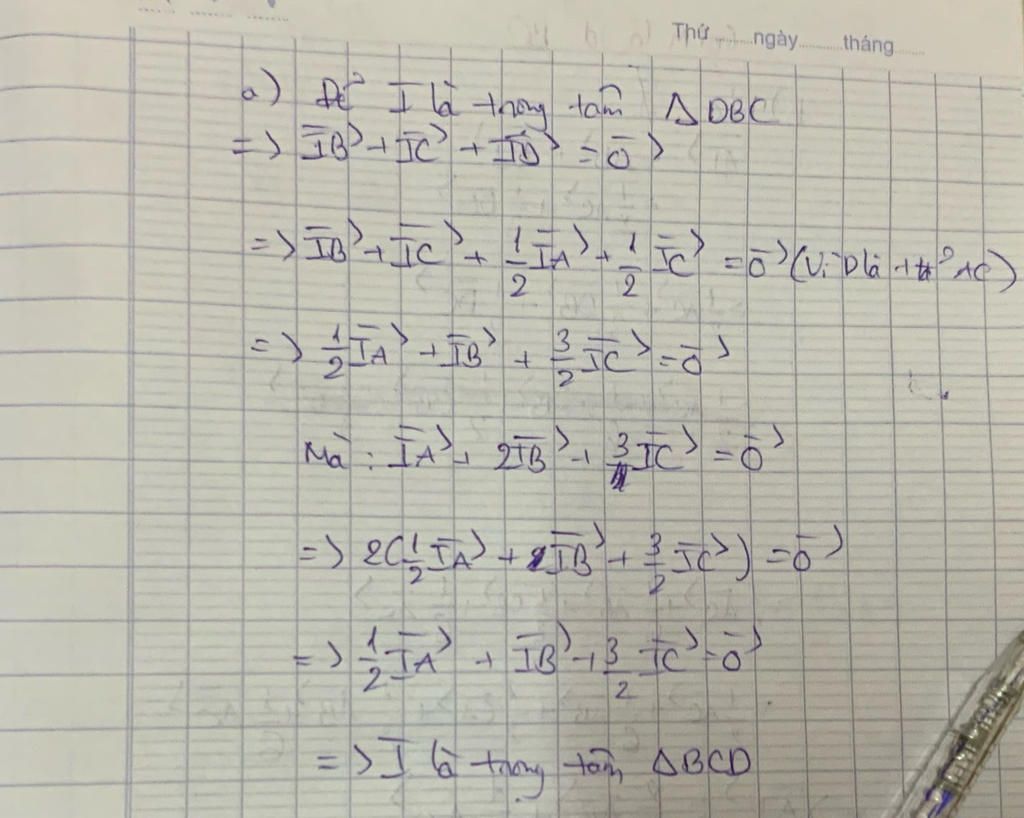 Thứ ........ ngày ........ tháng ........
a) Để I là trọng tâm Δ DBC
=> IB→ + IC→ + ID→ = 0→
=> IB→ + IC→ + 1/2 IA→ + 1/2 IC→ = 0→ (Vì D là tđ AC)
=> 1/2 IA→ + IB→ + 3/2 IC→ = 0→
Mà : IA→ + 2IB→ + 3IC→ = 0→
=> 2(1/2 IA→ + IB→ + 3/2 IC→) = 0→
=> 1/2 IA→ + IB→ + 3/2 IC→ = 0→
=> I là trọng tâm ΔBCD